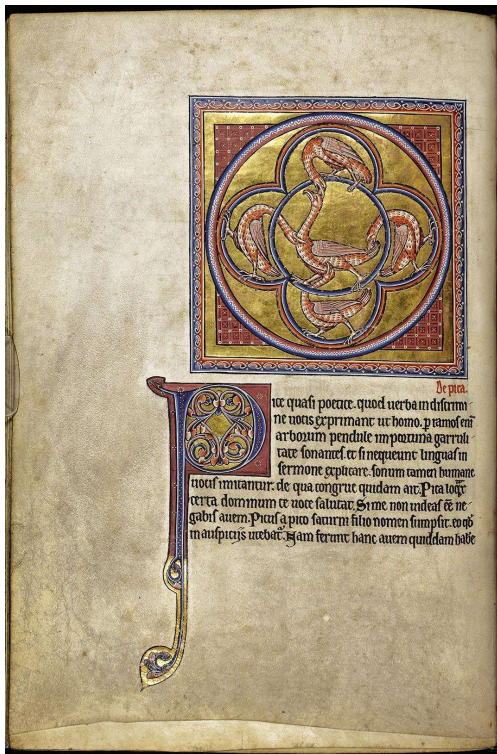 De pica.
Pice quasi poetice. quod uerba in discrimi
ne uocis exprimant ut homo. p ramos eni
arborum pendule importuna garruli
tate sonantes. et si nequeunt linguas in
sermone explicare. sonum tamen humane
uocis imitantur. de qua congrue quidam ait. Pica loqax
certa dominum te uoce saluta. Si me non uideas ee ne
gabis auem. Picus a pico saturni filio nomen sumpsit. eo qd
in auspicijs utebat. Nam ferunt hanc auem quiddam habe